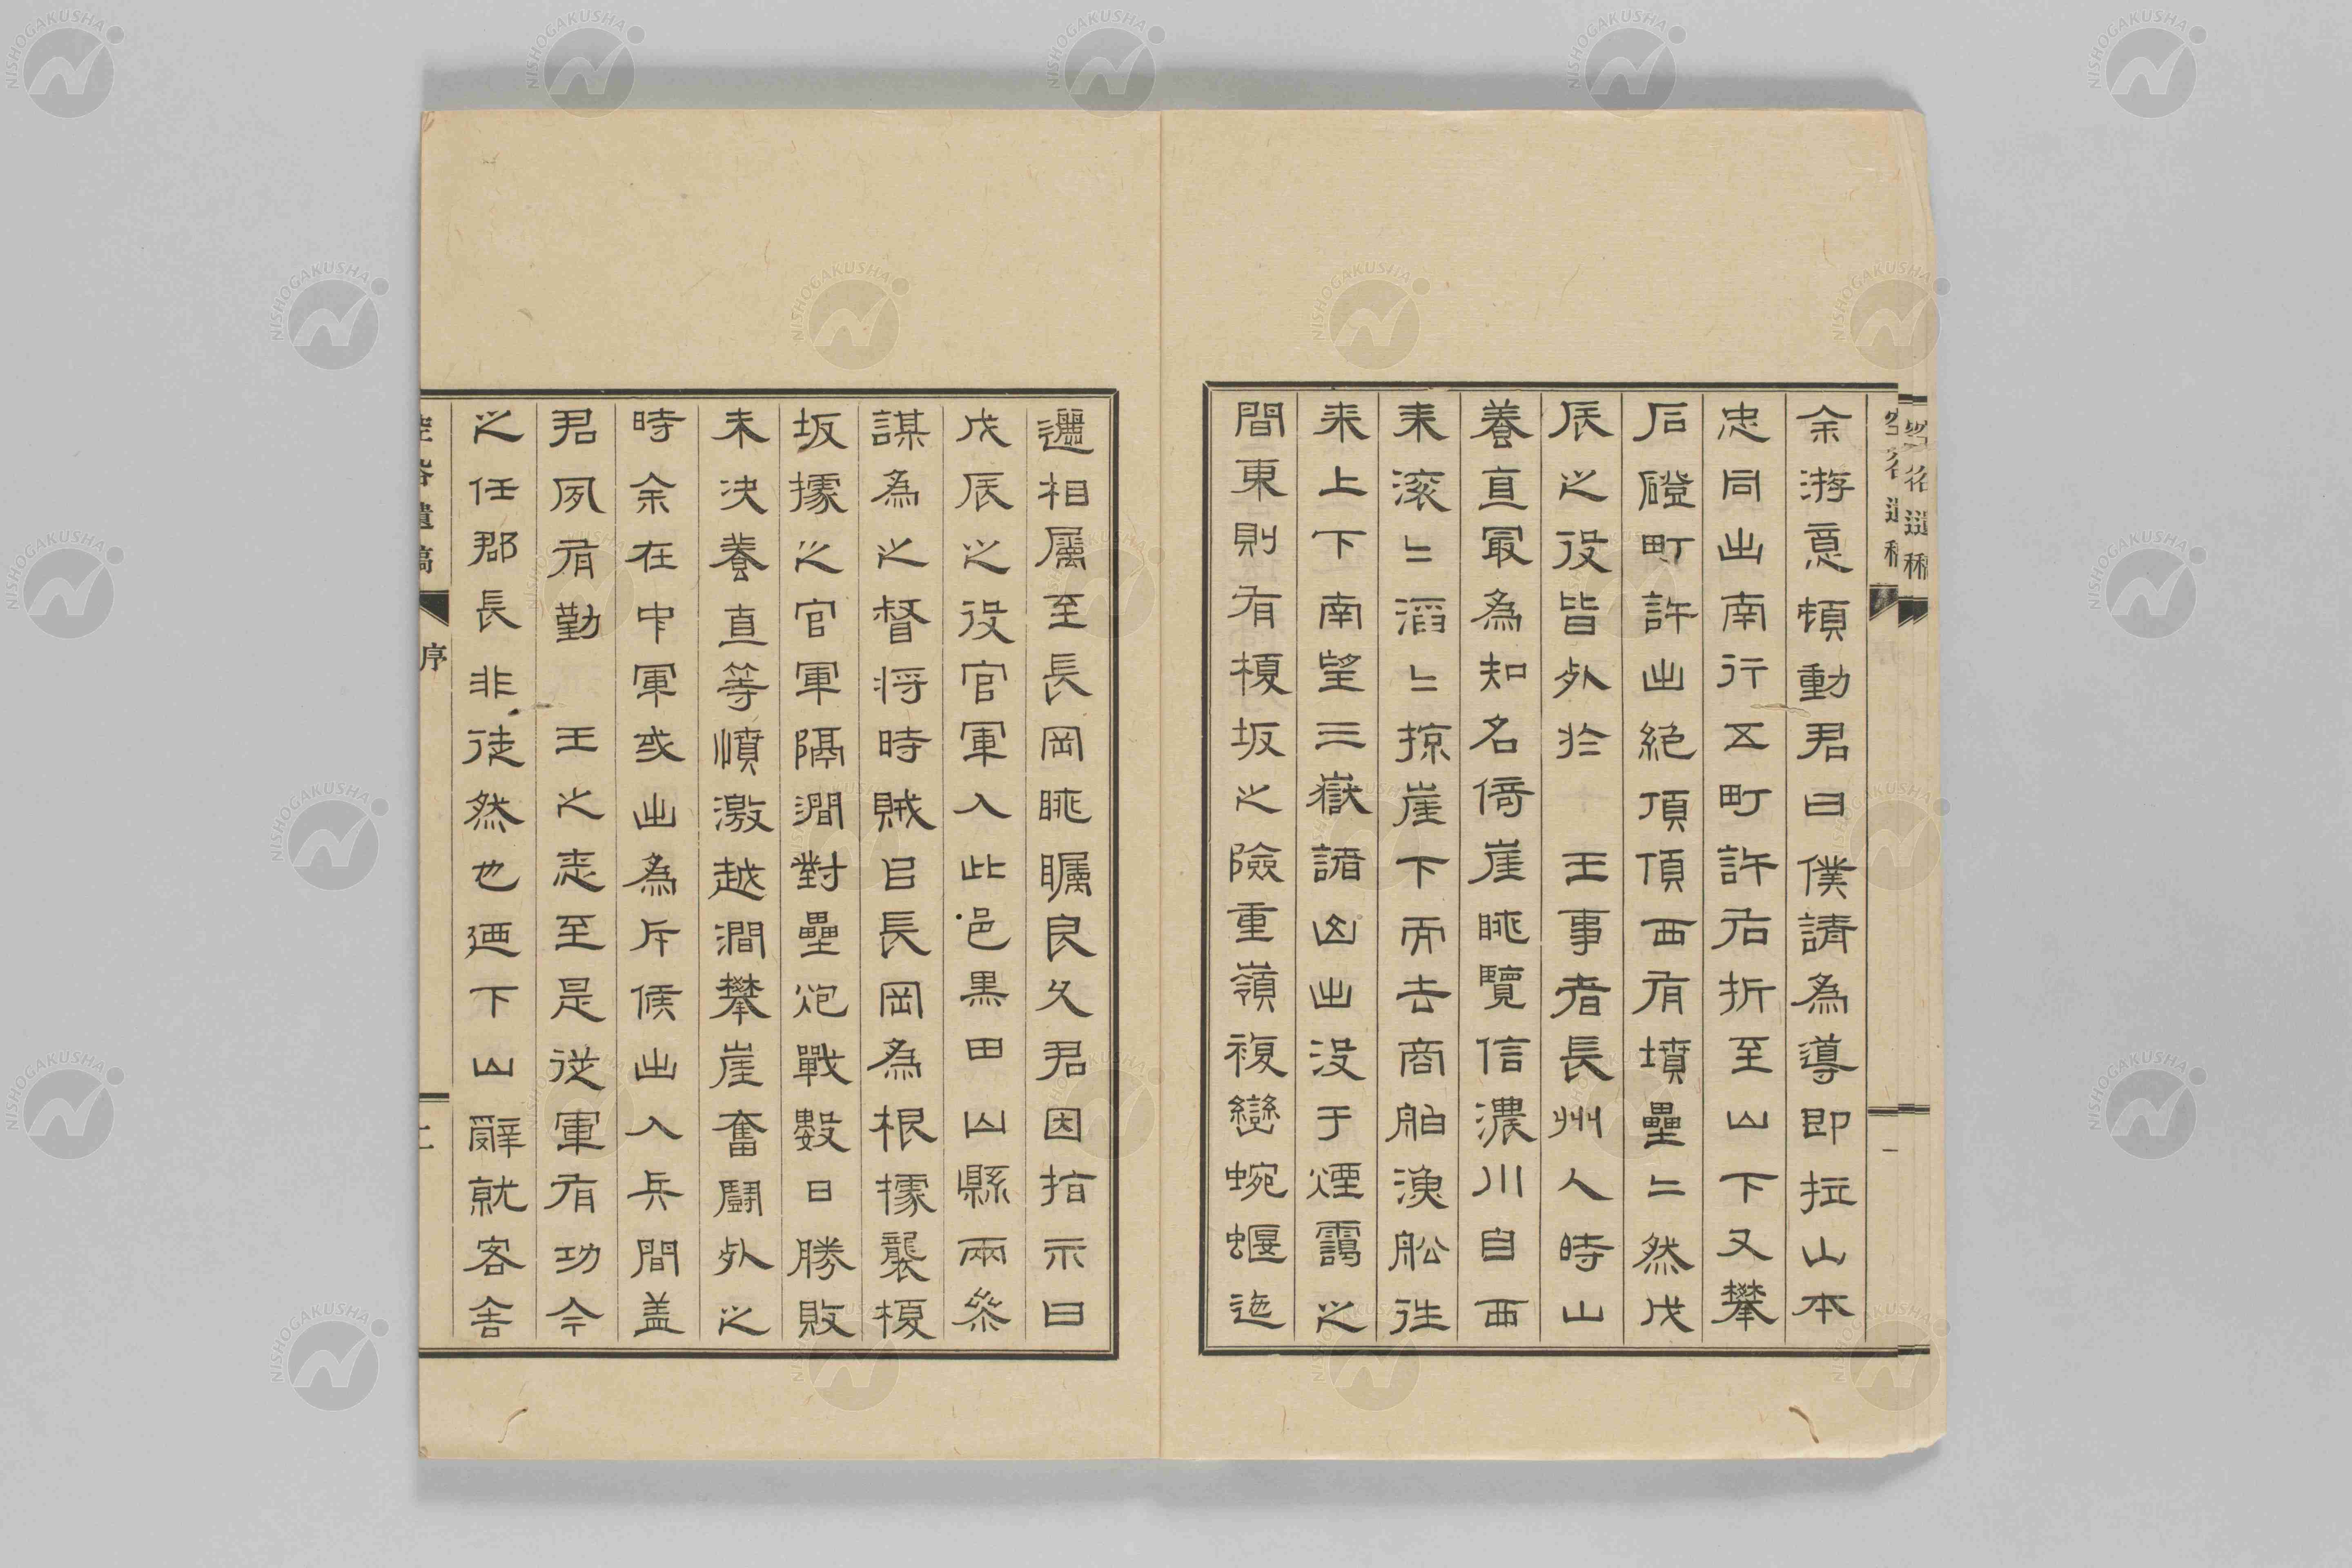 余游意頓動君曰僕請為導即拉山本
忠同出南行五町許右折至山下又攀
石磴町許出絶頂頂西有墳壘〻然戊
辰之役皆死於 王事者長州人時山
養直最為知名倚崖眺覽信濃川自西
来滚〻滔〻掠崖下而去商舶漁舩往
来上下南望三嶽諸山出没于煙靄之
間東則有榎坂之險重嶺複巒蜿蜒迤
邐相属至長岡眺矚良久君因指示曰
戊辰之役官軍入此邑黒田山縣兩參
謀為之督将時賊以長岡為根據襲榎
坂據之官軍隔澗對壘炮戰數日勝敗
未決養直等憤激越澗攀崖奮鬪死之
時余在中軍或出為斥候出入兵間盖
君夙有勤 王之志至是従軍有功今
之任郡長非徒然也廼下山辭就客舎
遺稿
序
NISHOGAKUSHA